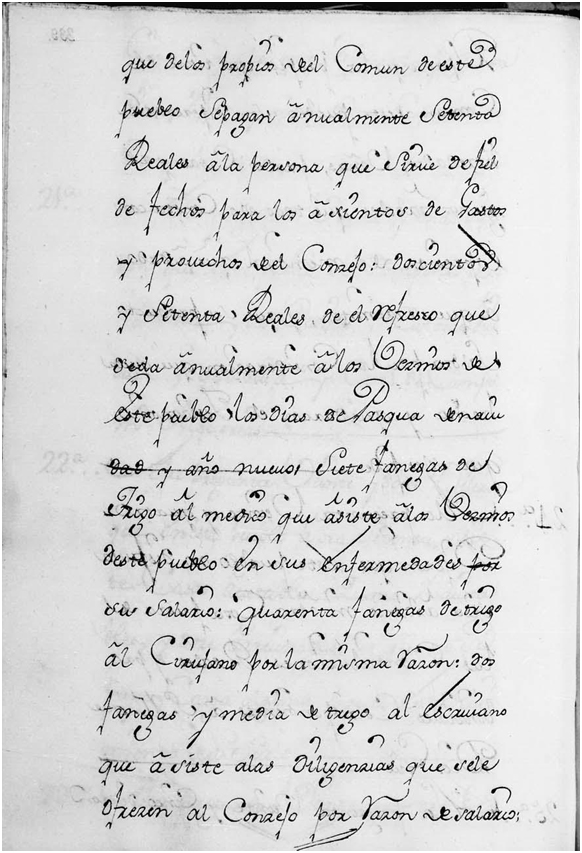 que delos propios del Comun deeste
pueblo Sepagan ânualmente Setenta
Reales âla persona que Sirue de fiel
de fechos para los âsientos de Gastos
y prouechos del Conzejo: doscientos
y Setenta Reales de el Refresco que
seda ânualmente âlos Vezinos de
este pueblo los dias de Pasqua denaui
dad y año nueuo: Siete fanegas de
Trigo âl medico que âsiste âlos Vezinos
deste pueblo en sus enfermedades por
su salario: quarenta fanegas de trigo
âl Cirujano por la misma Razon: dos
fanegas y media de trigo al escriuano
que âsiste alas Diligenzias que sele
ofrezen al Conzejo por Razon de salario:
21ª
22ª